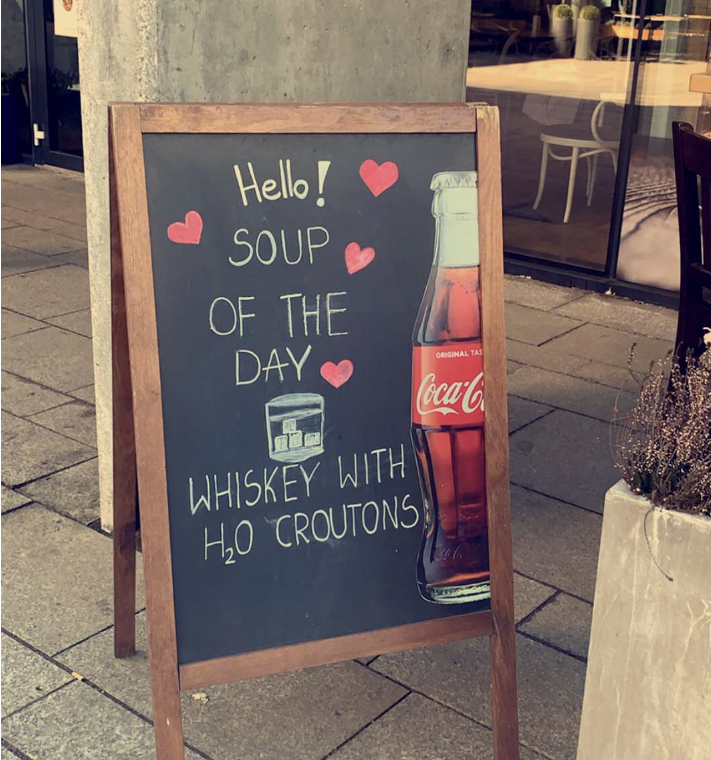 Hello!
SOUP
OF THE
DAY
WHISKEY WITH
H₂O CROUTONS
ORIGINAL TAS
Coca-C